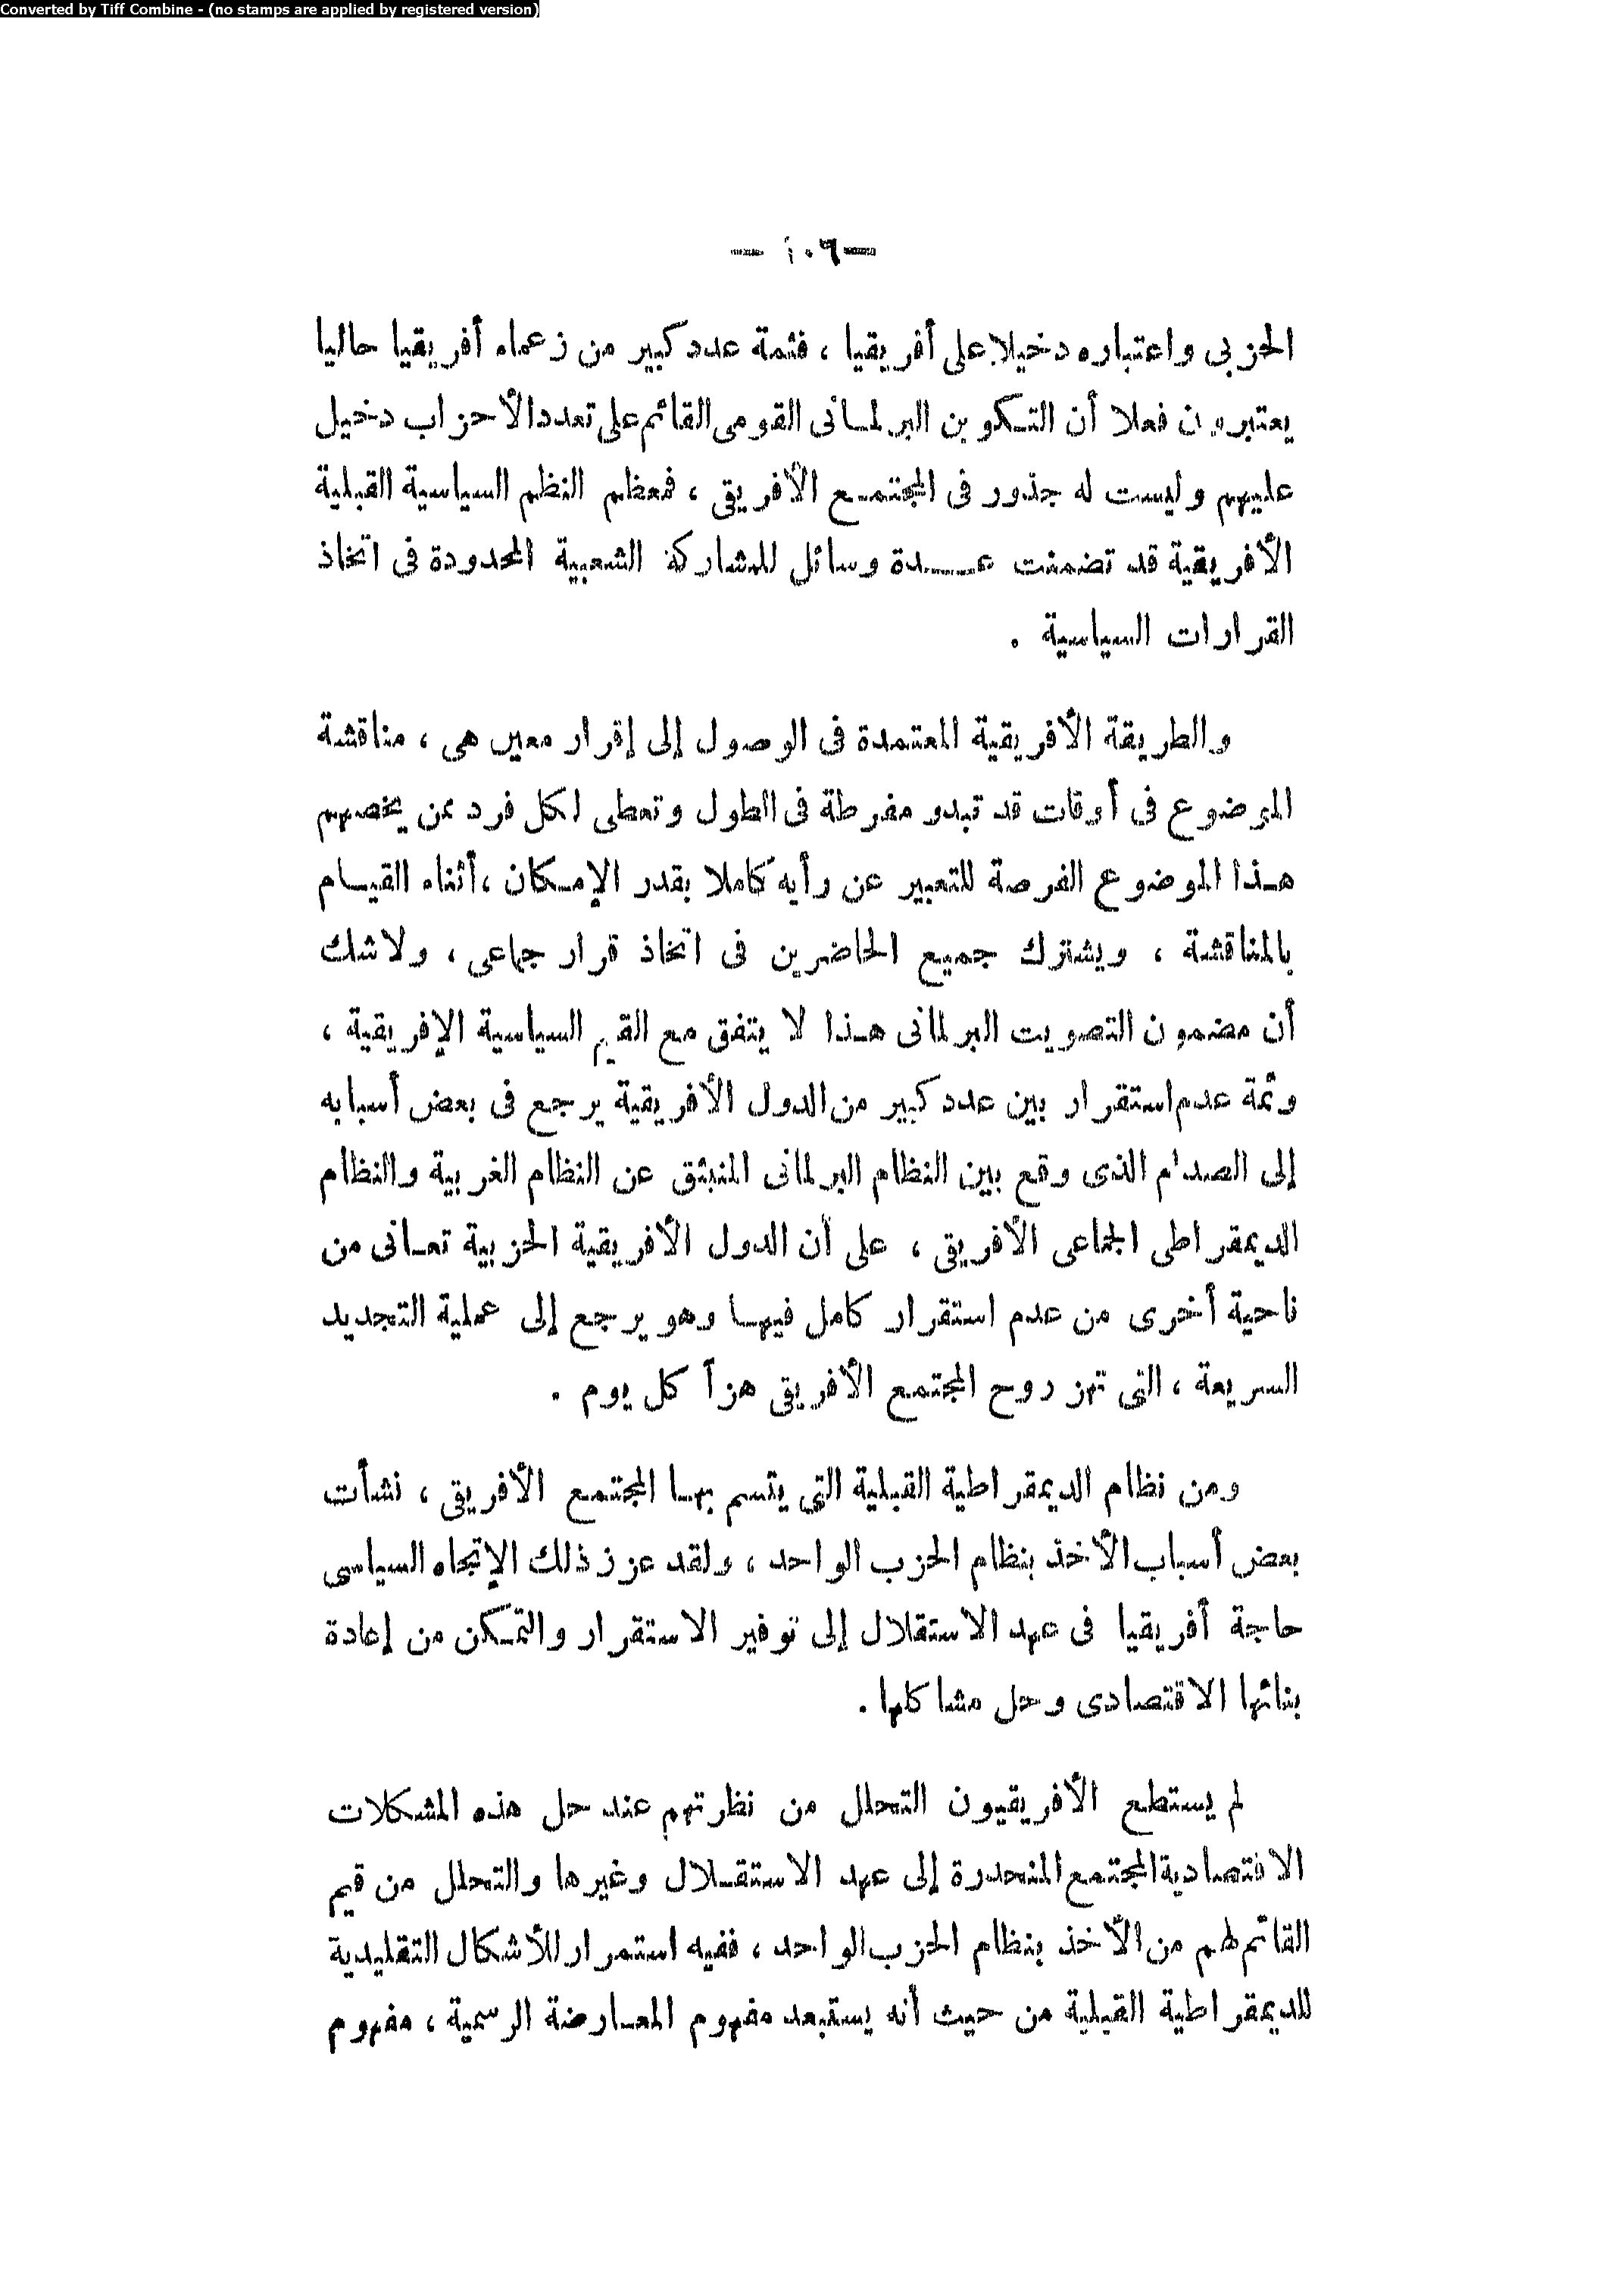 Converted by Tiff Combine - (no stamps are applied by registered version)
— ١٠٦ —
الحزبى واعتباره دخيلا على أفريقيا ، فثمة عدد كبير من زعماء أفريقيا حاليا
يعتبرون فعلا أن التكوين البرلمانى القومى القائم على تعدد الأحزاب دخيل
عليهم وليست له جذور فى المجتمع الأفريقى ، فمعظم النظم السياسية القبلية
الأفريقية قد تضمنت عدة وسائل للمشاركة الشعبية المحدودة فى اتخاذ
القرارات السياسية .
والطريقة الأفريقية المعتمدة فى الوصول إلى إقرار معين هى ، مناقشة
الموضوع فى أوقات قد تبدو مفرطة فى الطول وتعطى لكل فرد ممن يخصهم
هذا الموضوع الفرصة للتعبير عن رأيه كاملا بقدر الإمكان ، أثناء القيام
بالمناقشة ، ويشترك جميع الحاضرين فى اتخاذ قرار جماعى ، ولاشك
أن مضمون التصويت البرلمانى هذا لا يتفق مع القيم السياسية الإفريقية ،
وثمة عدم استقرار بين عدد كبير من الدول الأفريقية يرجع فى بعض أسبابه
إلى الصدام الذى وقع بين النظام البرلمانى المنبثق عن النظام الغربية والنظام
الديمقراطى الجماعى الأفريقى ، على أن الدول الأفريقية الحزبية تعانى من
ناحية أخرى من عدم استقرار كامل فيها وهو يرجع إلى عملية التجديد
السريعة ، التى تهز روح المجتمع الأفريقى هزآ كل يوم .
ومن نظام الديمقراطية القبلية التى يتسم بها المجتمع الأفريقى ، نشأت
بعض أسباب الأخذ بنظام الحزب الواحد ، ولقد عزز ذلك الإتجاه السياسى
حاجة أفريقيا فى عهد الاستقلال إلى توفير الاستقرار والتمكن من إعادة
بنائها الاقتصادى وحل مشاكلها .
لم يستطع الأفريقيون التحلل من نظرتهم عند حل هذه المشكلات
الاقتصادية المجتمع المنحدرة إلى عهد الاستقلال وغيرها والتحلل من قيم
القائم لهم من الأخذ بنظام الحزب الواحد ، ففيه استمرار للأشكال التقليدية
للديمقراطية القبلية من حيث أنه يستبعد مفهوم المعارضة الرسمية ، مفهوم